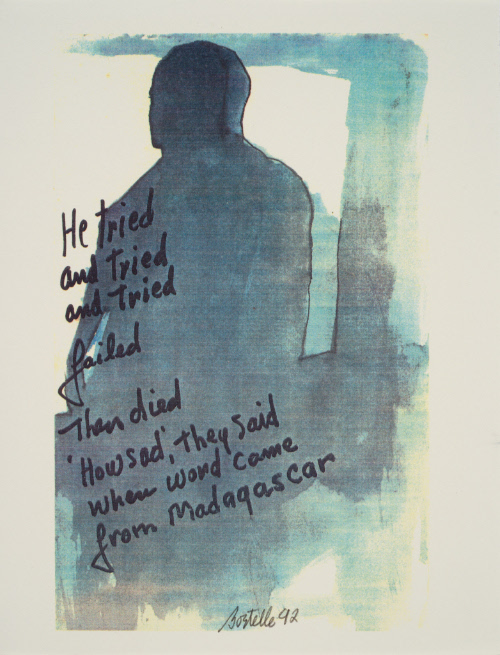 He tried
and tried
and tried
failed
Then died
'How sad', they said
when word came
from Madagascar
Sortelle 92